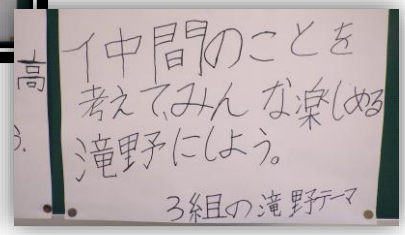 高
う.
仲間のことを
考えて、みんな楽しめる
滝野にしよう。
3組の滝野テーマ